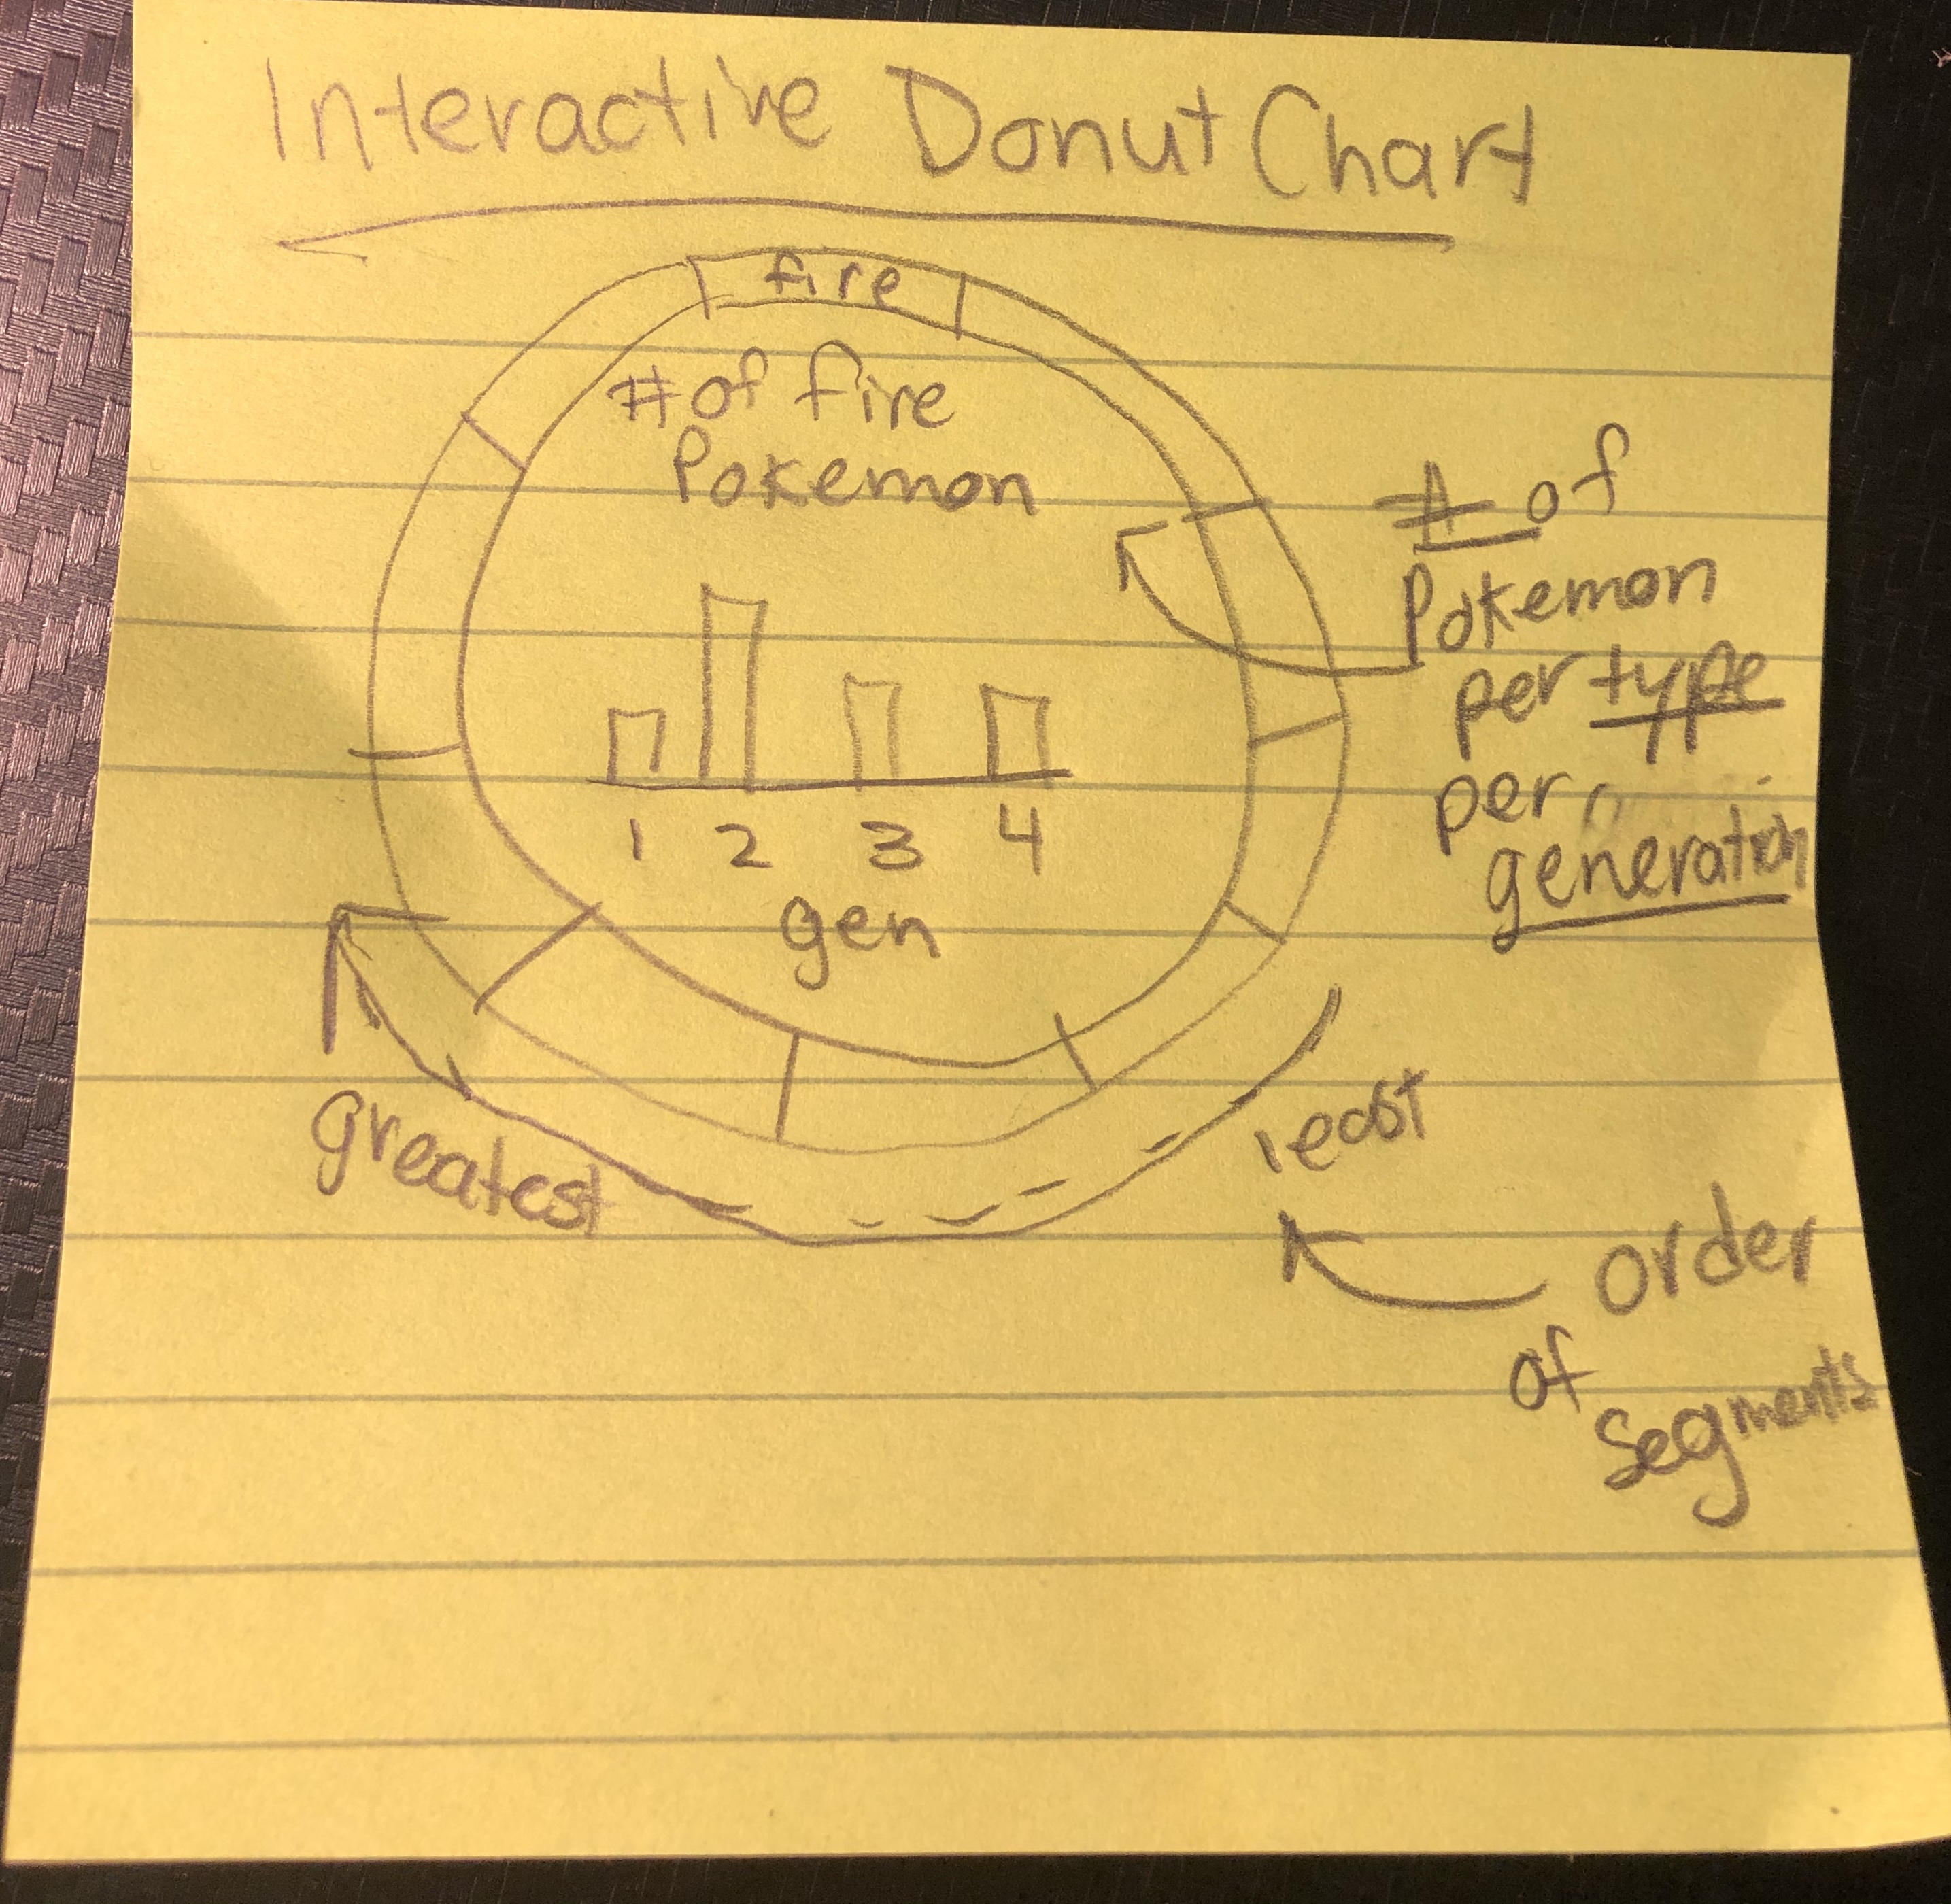 Interactive Donut Chart
fire
# of fire
Pokemon
1 2 3 4
gen
# of
Pokemon
per type
per
generation
greatest
least
order
of
segments